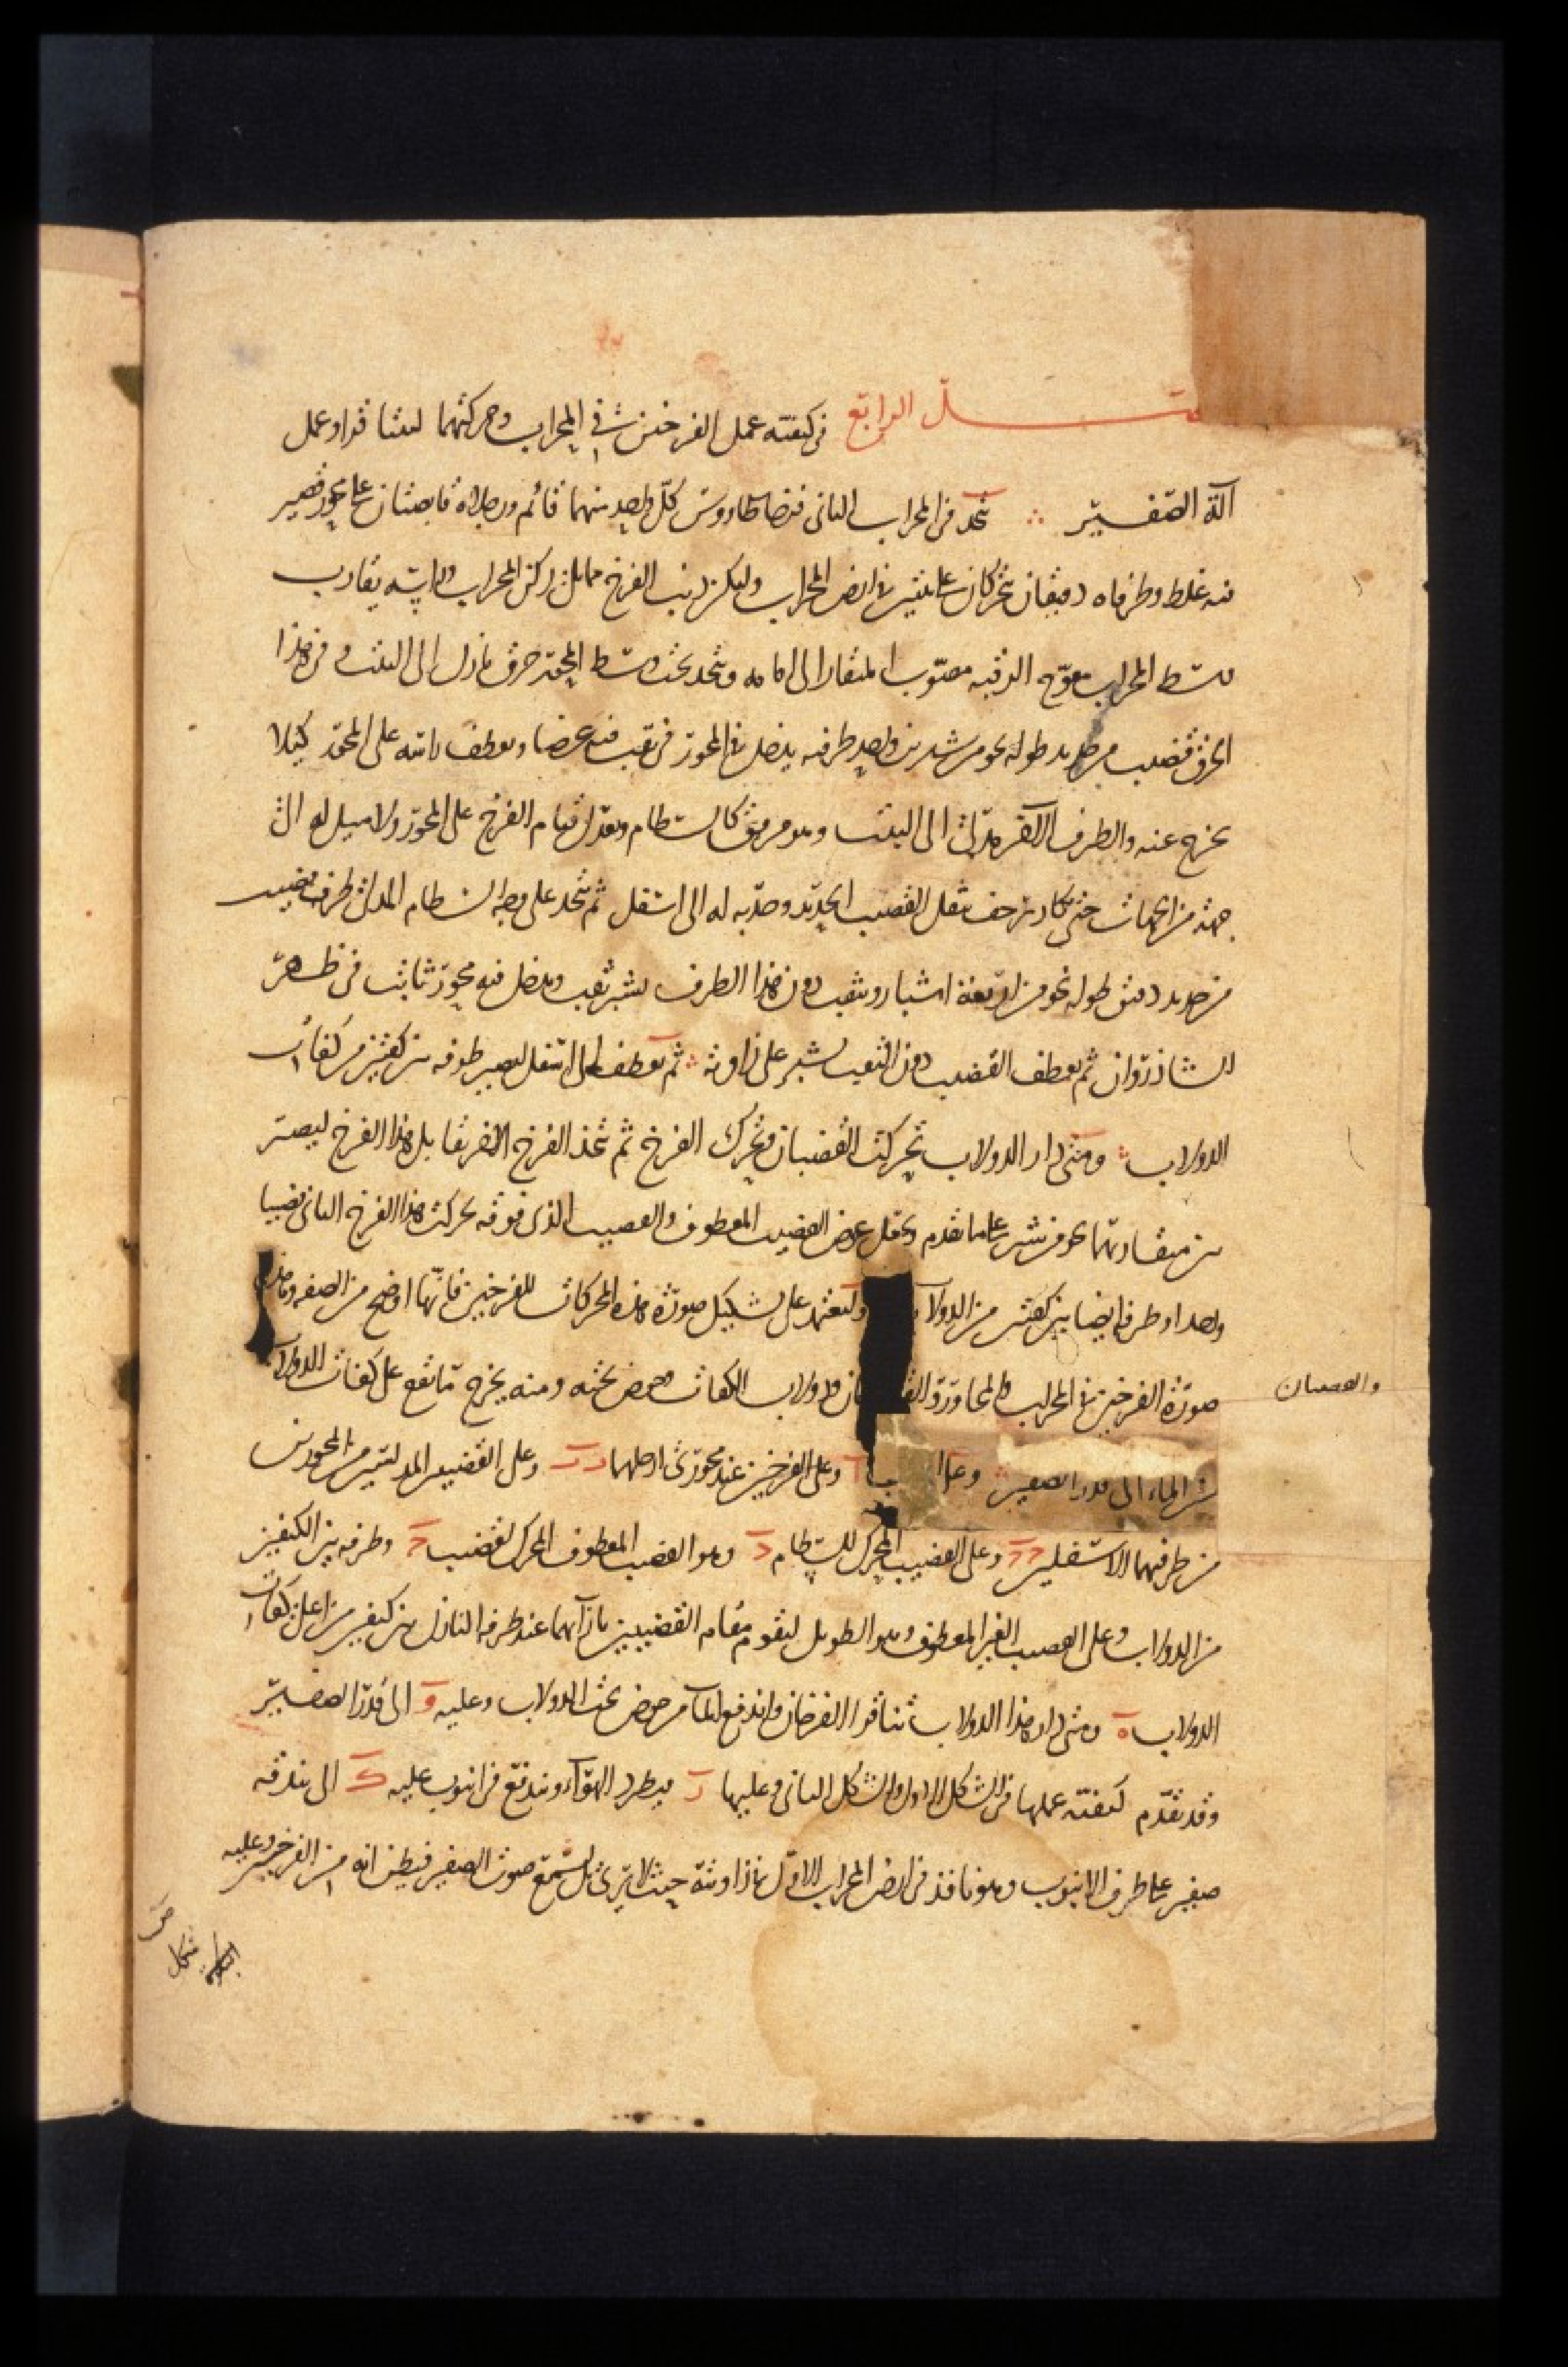 الفصل الرابع في كيفية عمل الفرخين في المحراب وحركتهما ليتناقرا وعمل
آلة الصفير ∴ يتخذ في المحراب الثاني فرخا طاووس كل واحد منهما قائم ورجلاه قابضتان على محور قصير
فيه غلظ وطرفاه دقيقان يتحركان على بيتين في ارض المحراب وليكن ذنب الفرخ مما يلي ركن المحراب ورأسه يقارب
وسط المحراب معوج الرقبة مصوب المنقار الى امامه ويتخذ تحت وسط المحور خرق نازل الى البيت وفي هذا
الخرق قضيب من حديد طوله نحو من شبرين واحد طرفيه يدخل في المحور في ثقب فيه عرضا ويعطف راسه على المحور كيلا
يخرج عنه والطرف الآخر مدلى الى البيت وهو مرقق كالسطام ويعدل قيام الفرخ على المحور ولا ميل له الى
جهة من الجهات حتى يكاد يزحف بثقل القضيب الحديد وجذبه له الى اسفل ثم يتخذ على وجه السطام المدلى طرف قضيب
من حديد دقيق طوله نحو من اربعة اشبار ويثقب دون هذا الطرف بشبر ثقب ويدخل فيه محور ثابت في ظهر
الشاذروان ثم يعطف القضيب دون الثقب بشبر على زاوية ∴ ثم يعطف الى اسفل ليصير طرفه بين كفتين من كفات
الدولاب ∴ ومتى دار الدولاب تحركت القضبان وتحرك الفرخ ثم يتخذ الفرخ الآخر يقابل هذا الفرخ ليصير
بين منقاريهما نحو من شبر على ما تقدم ويجعل عوض القضيب المعطوف والقضيب الذي فوقه لحركة هذا الفرخ الثاني قضيبا
واحدا وطرفه ايضا بين كفتين من الدولاب وليعتمد على تشكيل صورة هذه الحركات للفرخين فانها اوضح من الصفة وهذه
صورة الفرخين في المحراب والمحاور والقضبان والدولاب الكفات وحوض تحته ومنه يخرج ما يقع على كفات الدولاب
والقضبان
من الماء الى قدر الصفير ∴ وعلى وعلى الفرخين عند محوري ارجلهما وعلى القضيبين المدليين من المحورين
من طرفيهما الاسفلين وعلى القضيب المحرك للسطام وهو القضيب المعطوف المحرك لقضيب وطرفه بين الكفين
من الدولاب وعلى القضيب الغير المعطوف وهو الطويل ليقوم مقام القضيبين بازائهما عند طرفه النازل بين كفين من اعلى كفات
الدولاب ه ومتى دار هذا الدولاب تناقرا الفرخان واندفع الماء من حوض تحت الدولاب وعليه و الى قدر الصفير
وقد تقدم كيفية عملها في الشكل الاول والشكل الثاني وعليها ز فيطرد الهواء ويندفع في انبوب عليه الى بندقة
صفير على طرف الانبوب وهو نافذ في ارض المحراب الاول في زاوية حيث لا ترى بل يسمع صوت الصفير فيظن انه من الفرخين وعليه